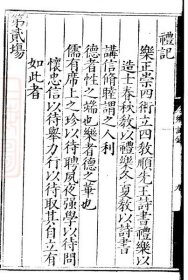 禮記
樂正崇四術立四教順先王詩書禮樂以
造士春秋教以禮樂冬夏教以詩書
講信脩睦謂之人利
德者性之端也樂者德之華也
儒有席上之珍以待聘夙夜強學以待問
懷忠信以待舉力行以待取其自立有
如此者
第貳場